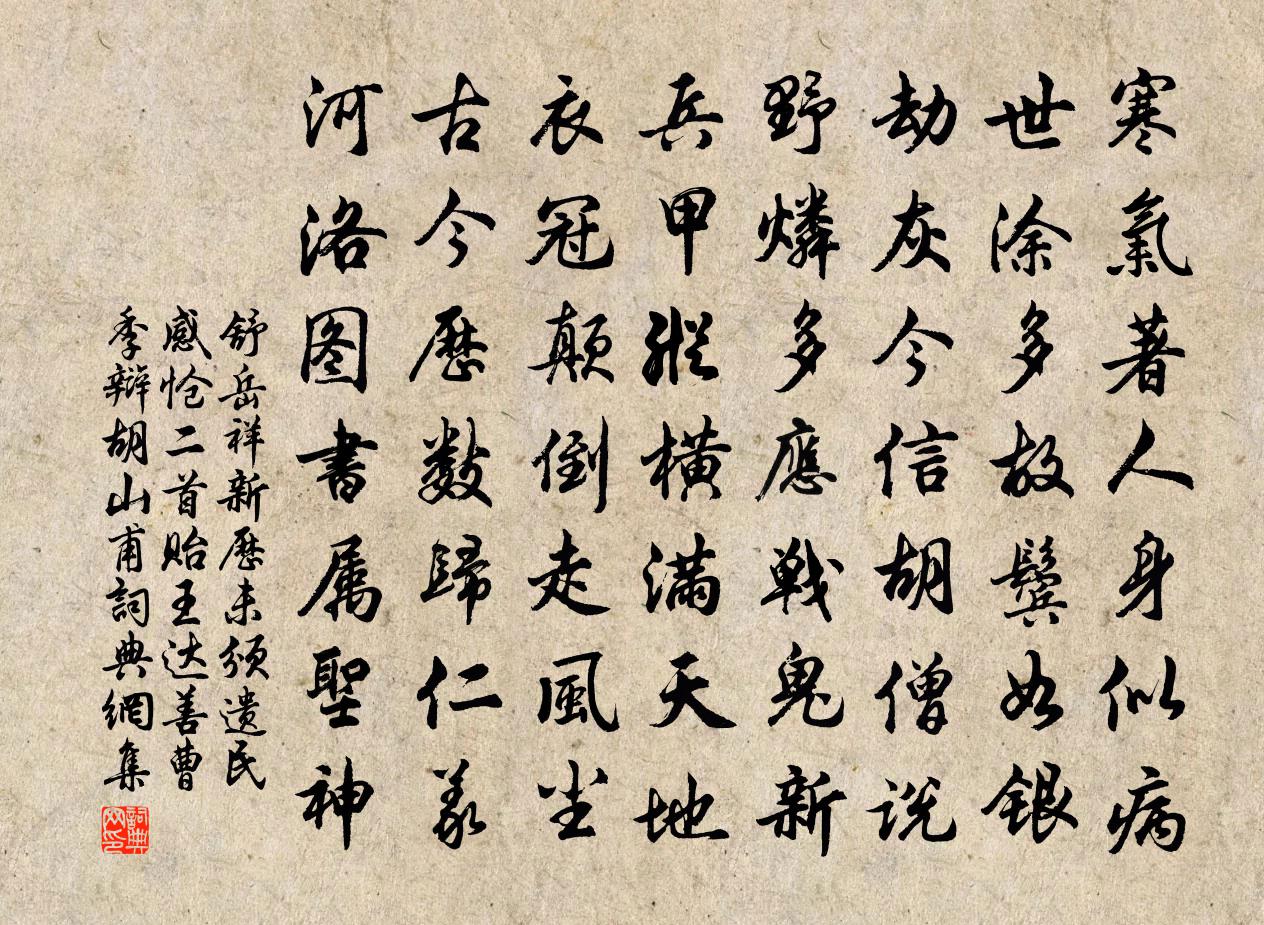 寒氣著人身似病
世涂多故鬓如銀
劫灰今信胡僧説
野燐多應戰鬼新
兵甲縱橫滿天地
衣冠顛倒走風塵
古今歷數歸仁義
河洛图書属聖神
舒岳祥新歷未颁遗民
感怆二首贻王达善曹
季辩胡山甫詞典網集
詞典网印